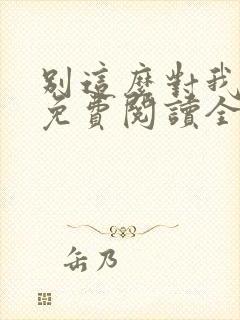 別這麼對我
免費閱讀全
缶乃